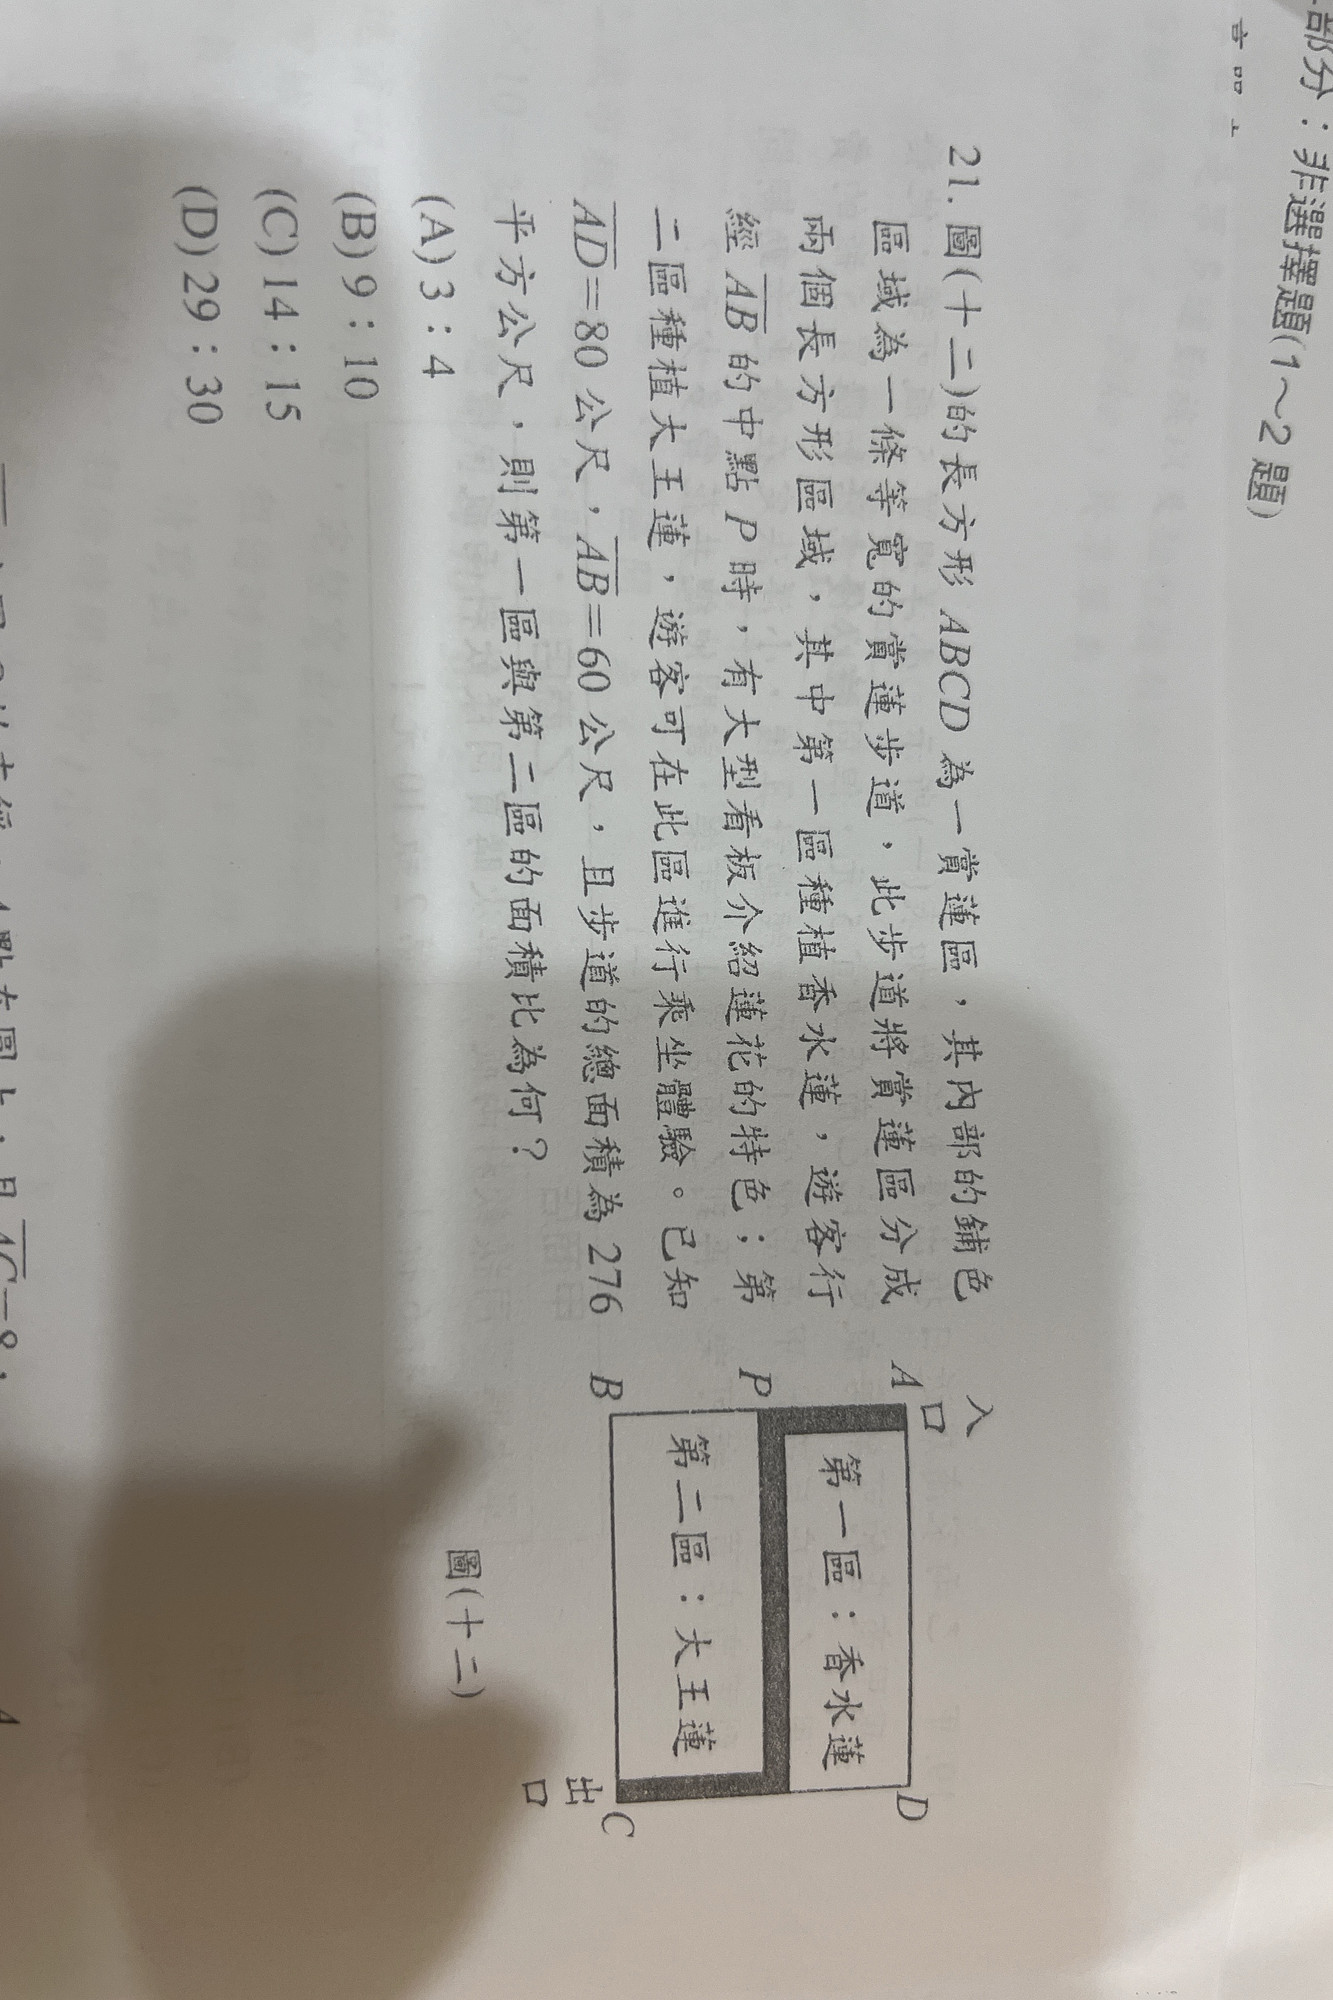 部分：非選擇題(1～2 題)
21. 圖(十二)的長方形 ABCD 為一賞蓮區，其內部的鋪色
區域為一條等寬的賞蓮步道，此步道將賞蓮區分成
兩個長方形區域，其中第一區種植香水蓮，遊客行
經 AB 的中點 P 時，有大型看板介紹蓮花的特色；第
二區種植大王蓮，遊客可在此區進行乘坐體驗。已知
AD＝80 公尺，AB＝60 公尺，且步道的總面積為 276
平方公尺，則第一區與第二區的面積比為何？
(A) 3：4
(B) 9：10
(C) 14：15
(D) 29：30
入口
A
D
第一區：香水蓮
P
第二區：大王蓮
B
C
出口
圖(十二)
AC＝8，